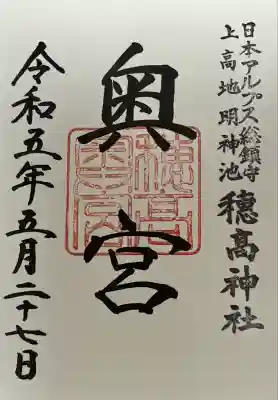 日本アルプス総鎮守
上高地明神池
穂髙神社
奥宮
令和五年五月二十七日